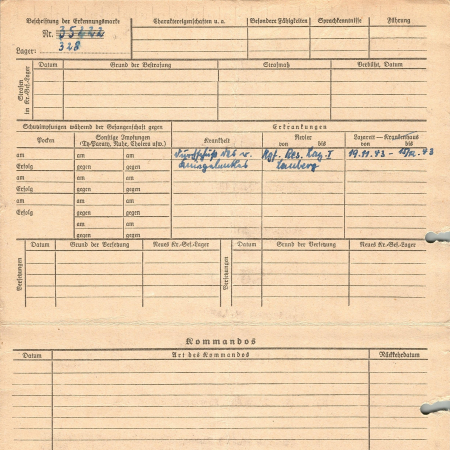 Beschriftung der Erkennungsmarke
Nr. 35422
Lager: 328
Charaktereigenschaften u. a.
Besondere Fähigkeiten
Sprachkenntnisse
Führung
Strafen im Kr.-Gef.-Lager
Datum
Grund der Bestrafung
Strafmaß
Verbüßt, Datum
Schutzimpfungen während der Gefangenschaft gegen
Erkrankungen
Pocken
Sonstige Impfungen
(Ty.-Paraty., Ruhr, Cholera usw.)
Krankheit
Revier
von bis
Lazarett – Krankenhaus
von bis
am
am
Erfolg
gegen
am
am
Erfolg
gegen
am
am
Erfolg
gegen
am
am
Erfolg
gegen
am
gegen
am
gegen
am
gegen
am
gegen
Kgf. Res. Laz. I
19.11.43 –
Versetzungen
Datum
Grund der Versetzung
Neues Kr.-Gef.-Lager
Versetzungen
Datum
Grund der Versetzung
Neues Kr.-Gef.-Lager
Kommandos
Datum
Art des Kommandos
Rückkehrdatum